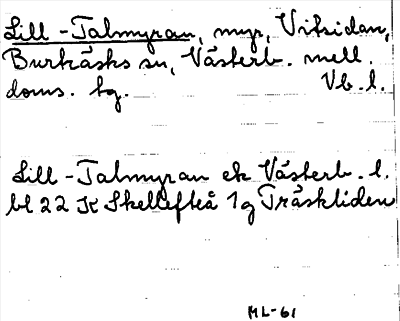 Lill-Talmyran, myr, Vitsidan,
Burträsks sn, Västerb. mell.
doms. hg. Vb. l.
Lill-Talmyran ek Västerb. l.
bl 22 K Skellefteå 1g Träskliden
ML-61